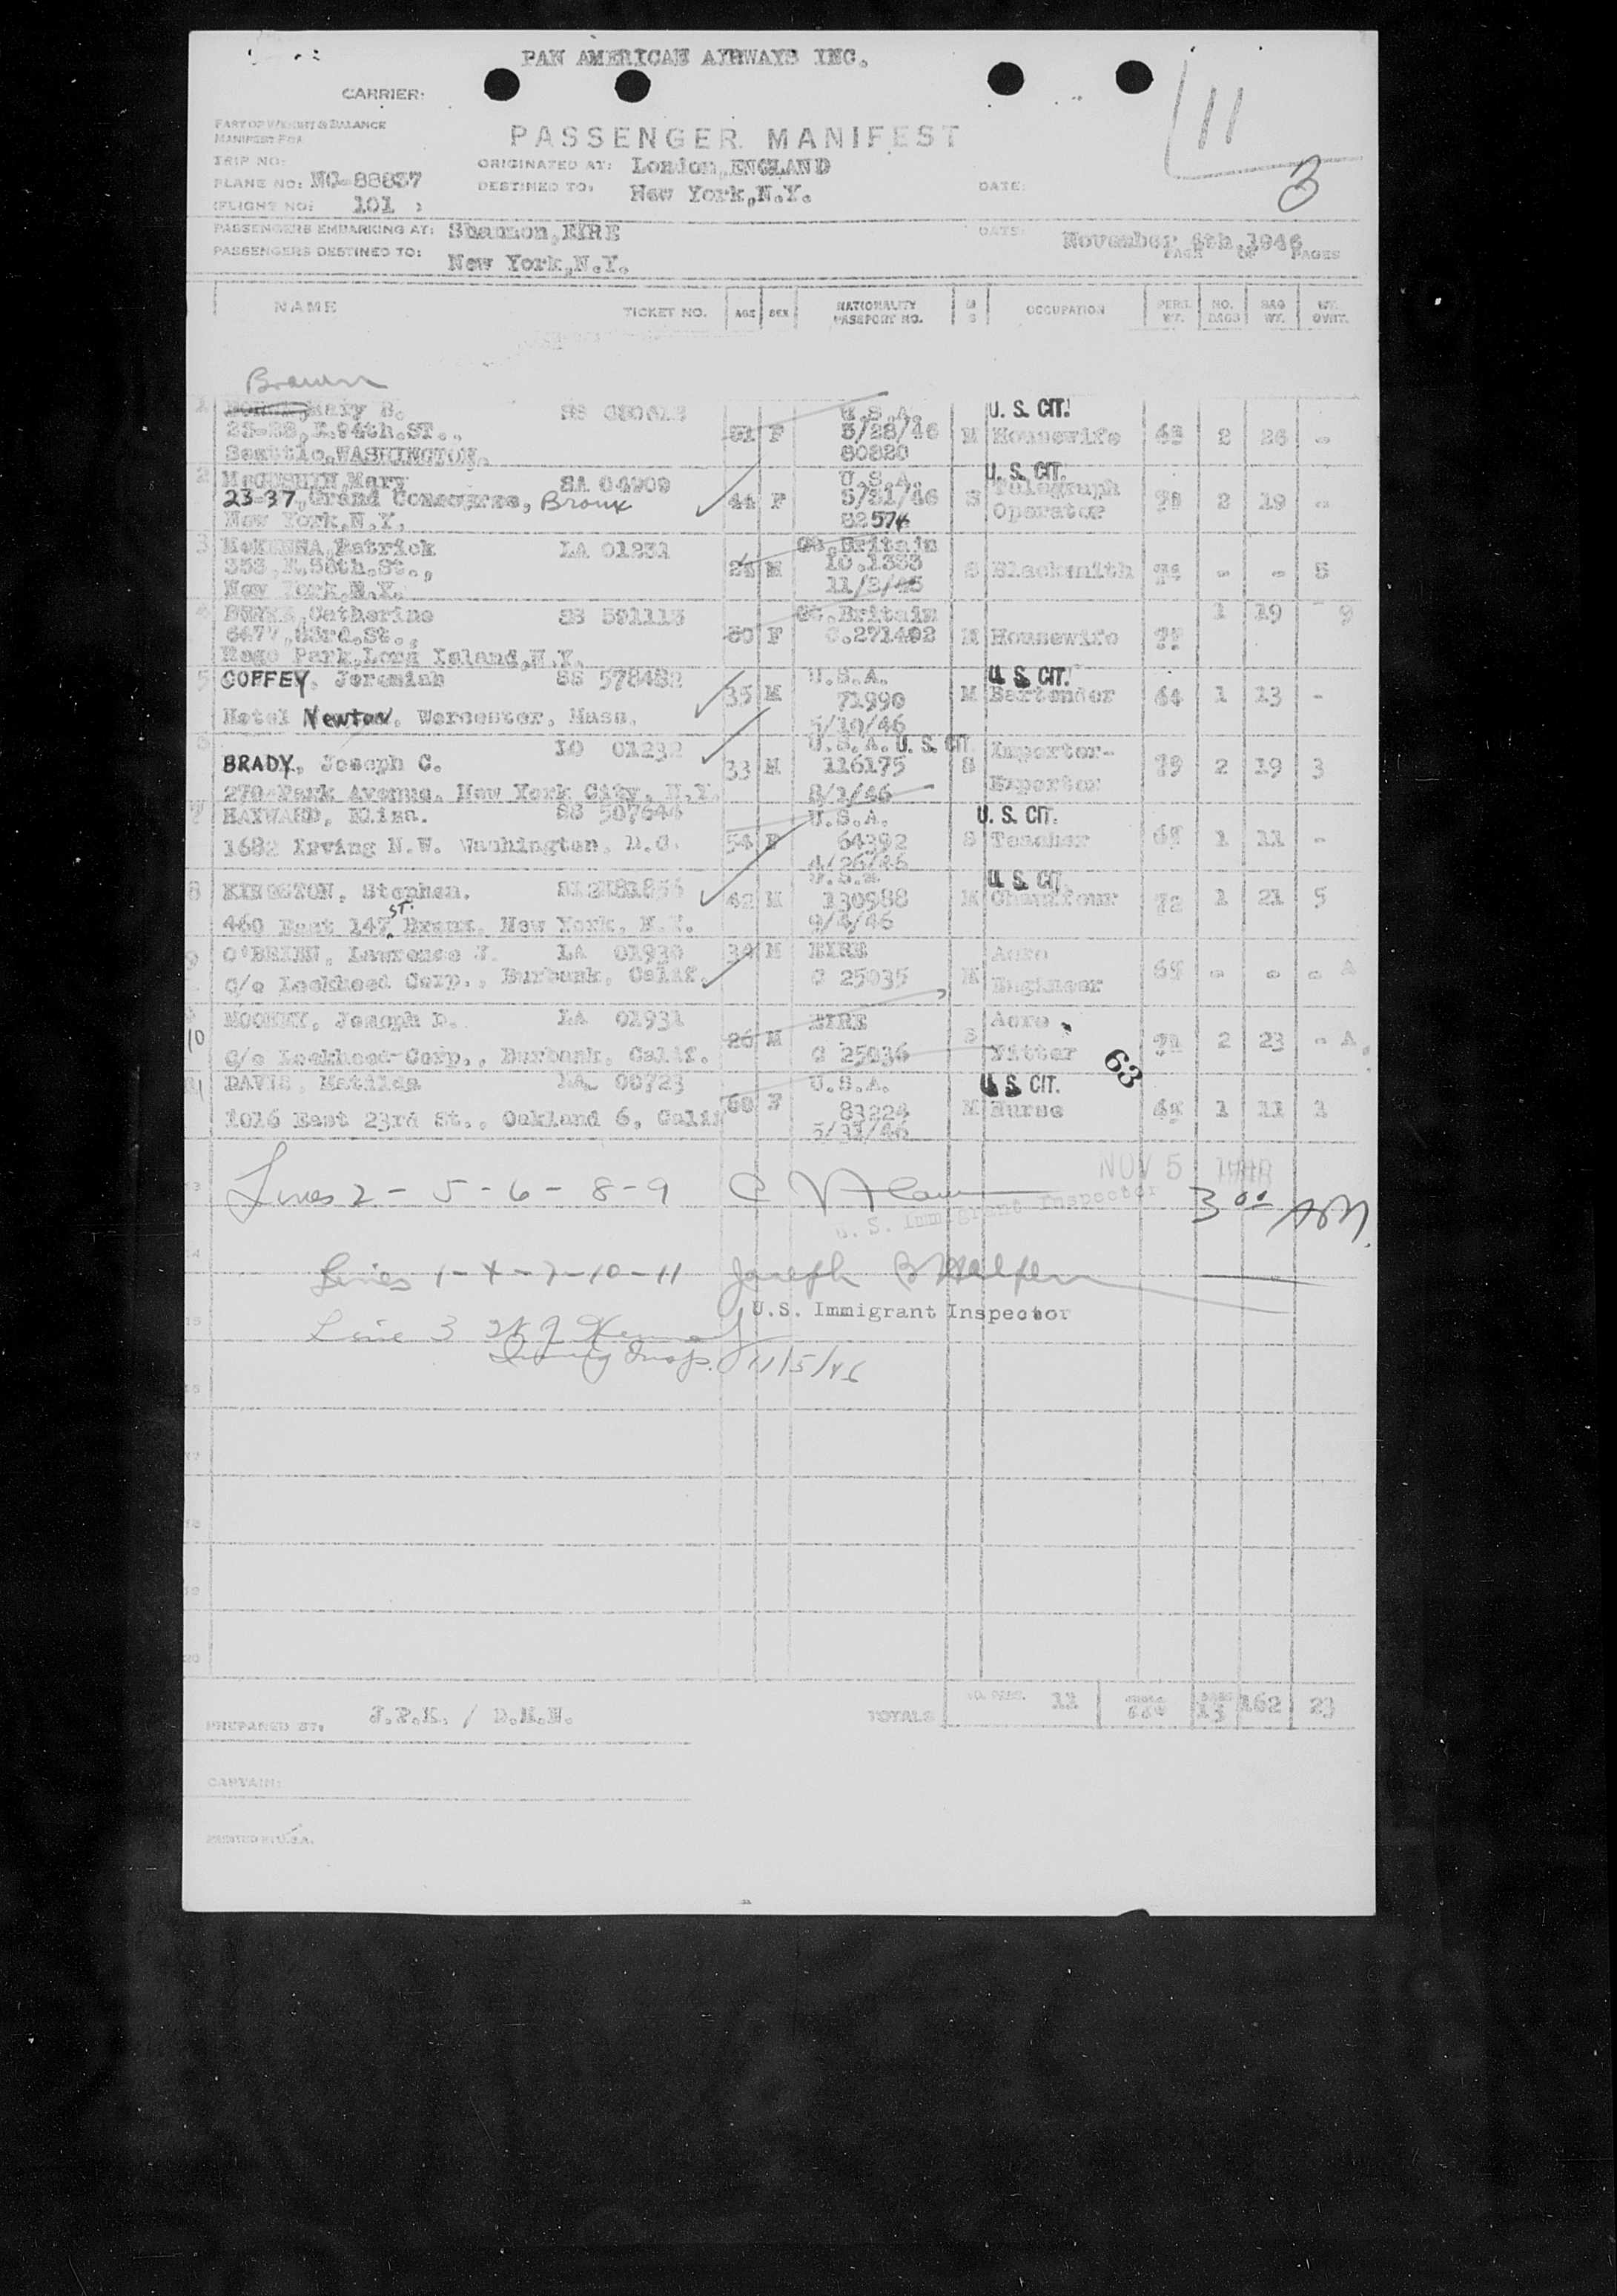 PAN AMERICAN AIRWAYS INC.
CARRIER:
PART OF WEIGHT & BALANCE
MANIFEST FOR
PASSENGER MANIFEST
11
3
TRIP NO:
ORIGINATED AT: London, ENGLAND
PLANE NO: NC-88837
DESTINED TO: New York, N.Y.
DATE:
FLIGHT NO: 101
PASSENGERS EMBARKING AT: Shannon, EIRE
DATE: November 5th, 1946
PASSENGERS DESTINED TO: New York, N.Y.
PAGE OF PAGES
NAME TICKET NO. AGE SEX NATIONALITY PASSPORT NO. M S OCCUPATION PERS. WT. NO. BAGS BAG WT. WT. OVWT.
Brown
1 Mary B. SS U.S.A. U. S. CIT.
E.94th.ST., F 5/28/46 M Housewife 2 26 -
Seattle, WASHINGTON. 80820
2 Mary SA 04909 U.S.A. U. S. CIT.
23-37, Grand Concourse, Bronx 44 F 5/31/46 S Telegraph Operator 2 19 -
New York, N.Y. 82574
3 McKENNA, Patrick LA 01231 Gt. Britain
M S Blacksmith - - 5
New York, N.Y. 11/2/45
4 Catherine SS 591113 Gt. Britain 1 19 - 9
83rd.St., F C.271492 M Housewife
Rego Park, Long Island, N.Y.
5 COFFEY, Jeremiah SS 578482 U.S.A. U. S. CIT.
35 M 71990 M Bartender 64 1 13 -
Hotel Newton, Worcester, Mass. 5/10/46
6 IO 01232 U.S.A. U. S. CIT. Importer-
BRADY, Joseph C. 33 M 116175 S 79 2 19 3
270 Park Avenue, New York City, N.Y. 8/1/46 Exporter
7 HAYWARD, Eliza. SS 507644 U.S.A. U. S. CIT.
1682 Irving N.W. Washington, D.C. 54 F 64392 S Teacher 1 11 -
4/26/46
8 KINGSTON, Stephen. U.S.A. U. S. CIT.
42 M 130988 M Chauffeur 72 1 21 5
460 East 147ST Bronx, New York, N.Y. 9/4/46
9 O'BRIEN, Lawrence J. LA 01930 34 M EIRE Aero
C/o Lockheed Corp., Burbank, Calif. C 25035 M Engineer - - - A
10 MOONEY, Joseph D. LA 01931 26 M EIRE S Aero
C/o Lockheed Corp., Burbank, Calif. C 25036 Fitter 2 23 - A
63
11 DAVIS, Matilda 00723 U.S.A. U. S. CIT.
1016 East 23rd St., Oakland 6, Calif F 83224 M Nurse 1 11 1
5/31/46
NOV 5 1946
13 Lines 2 - 5 - 6 - 8 - 9
U. S. Immigrant Inspector
3 00 AM.
14 Lines 1 - 4 - 7 - 10 - 11 Joseph B Halpern
U.S. Immigrant Inspector
15 Line 3
Immig Insp. 11/5/46
16
17
18
19
20
PREPARED BY: J.P.K. / D.M.H. TOTALS NO. PASS. 11 13 162 23
CAPTAIN:
PRINTED IN U.S.A.